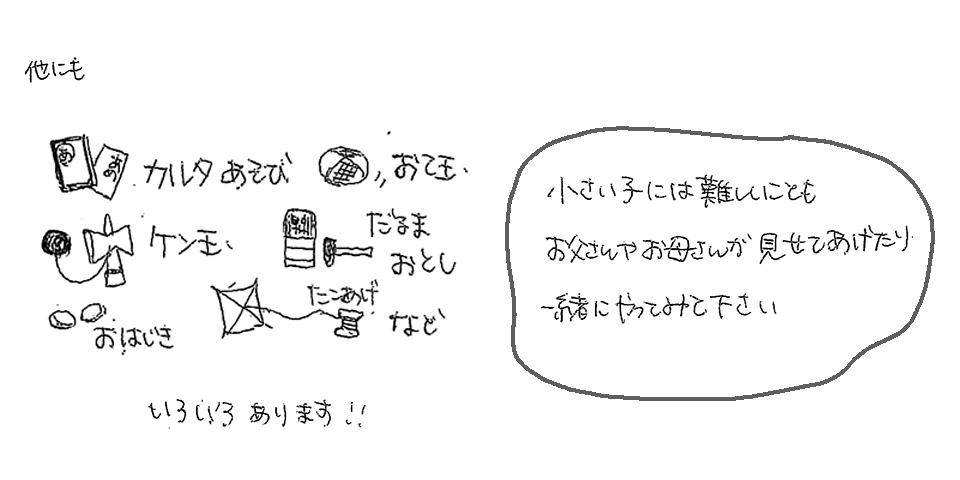 他にも
カルタあそび
おて玉、
ケン玉、
だるま
おとし
おはじき
たこあげ
など
いろいろあります!!
小さい子には難しいことも
お父さんやお母さんが見せてあげたり
一緒にやってみて下さい